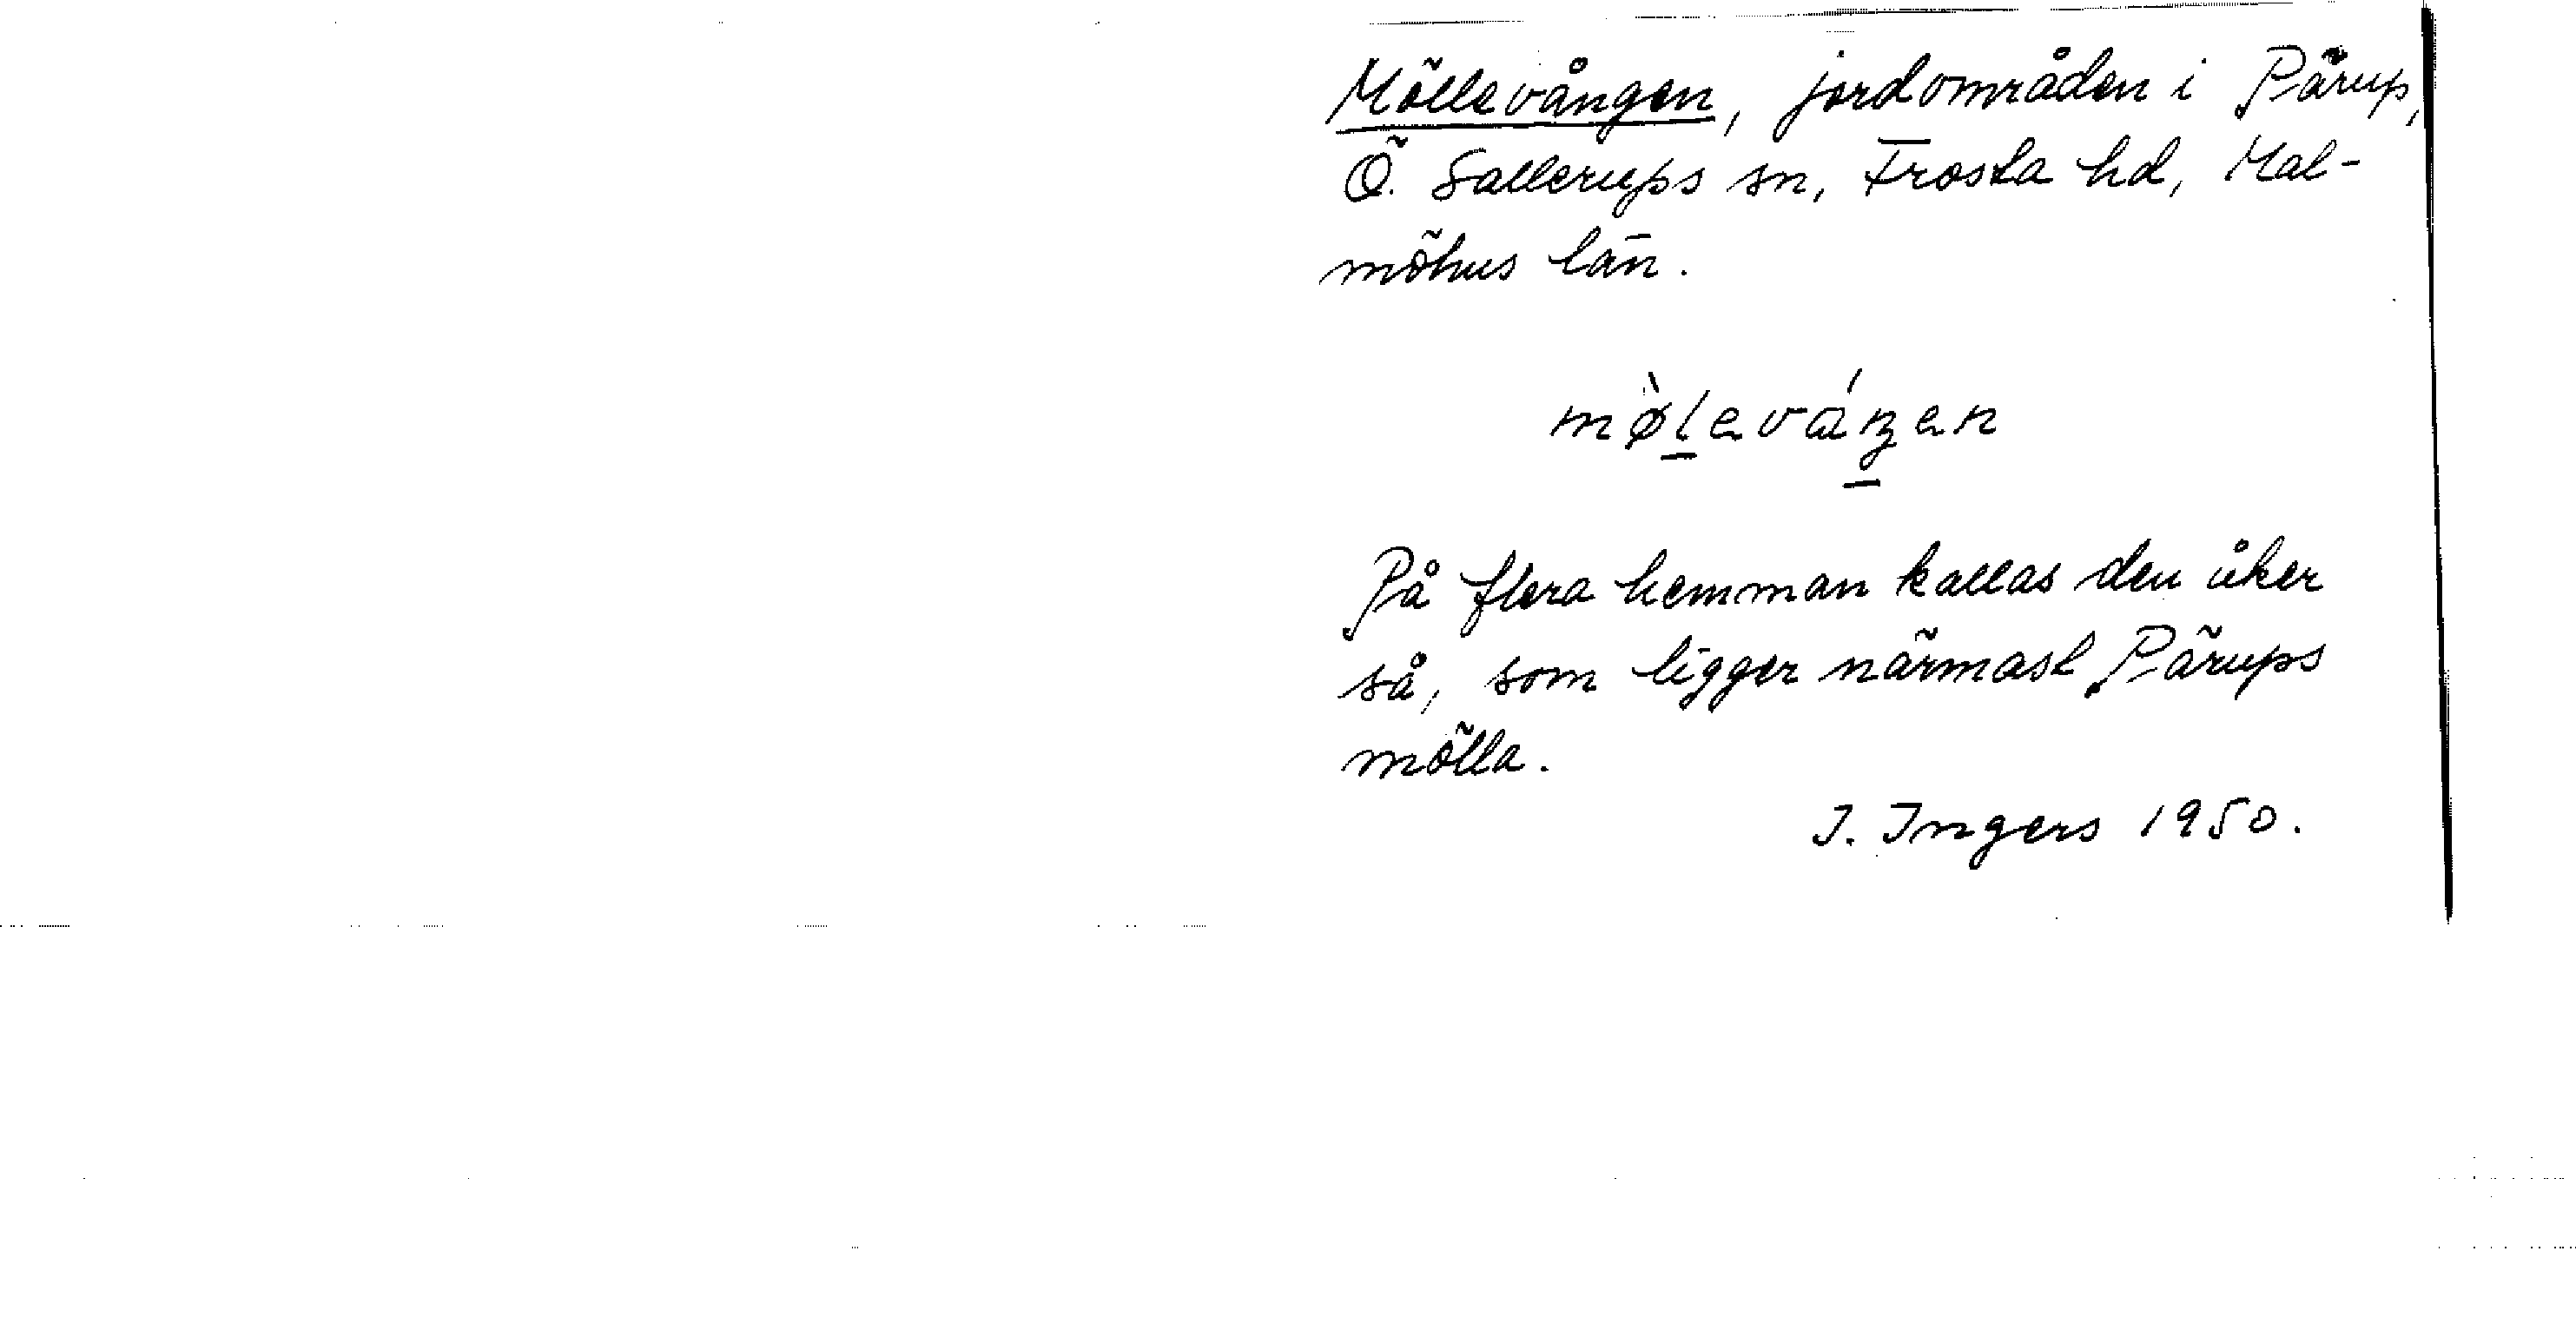 Möllevången, jordområden i Pärup,
Ö. Sallerups sn, Frosta hd, Mal-
möhus län.
mø̀leváŋen
På flera hemman kallas den åker
så, som ligger närmast Pärups
mölla.
I. Ingers 1950.